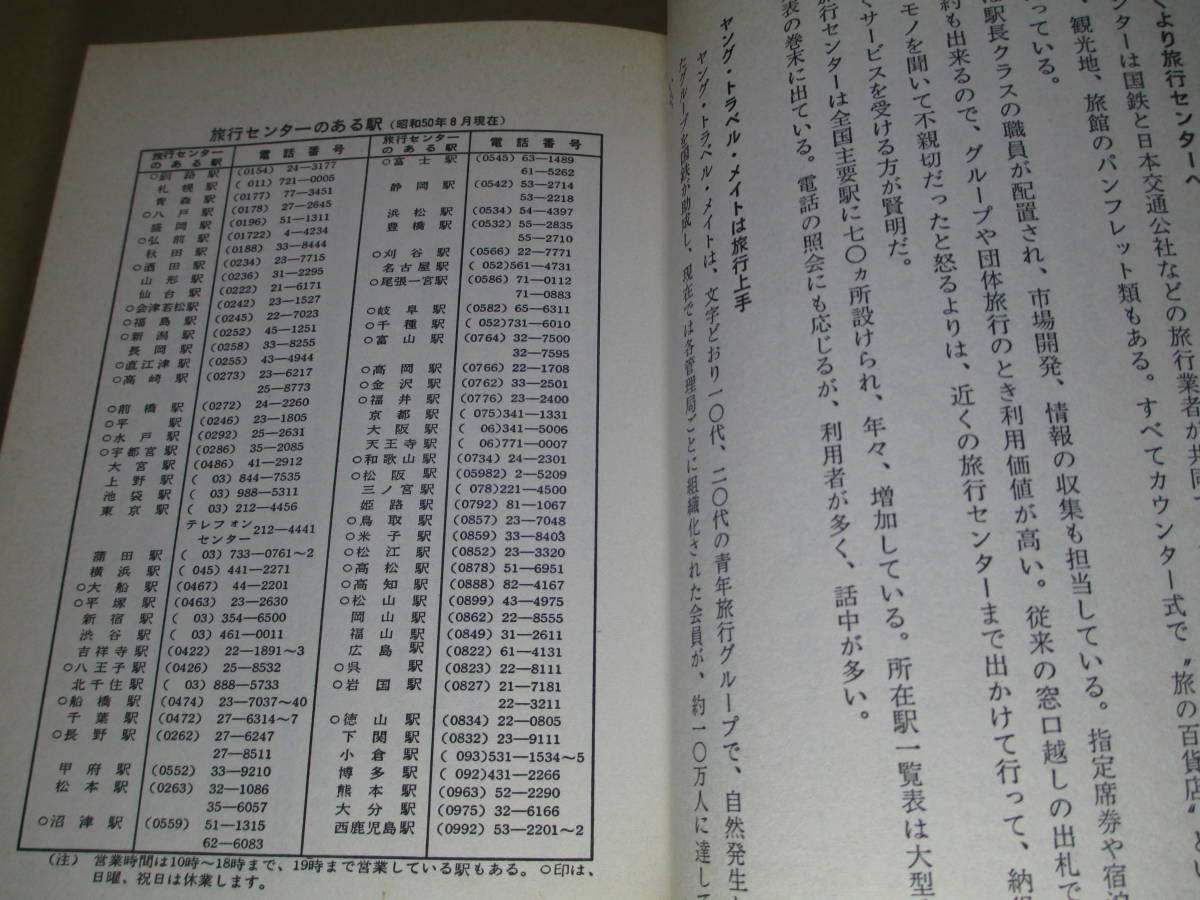 くより旅行センターへ
ターは国鉄と日本交通公社などの旅行業者が共同で
観光地、旅館のパンフレット類もある。すべてカウンター式で〝旅の百貨店〟とい
っている。
駅長クラスの職員が配置され、市場開発、情報の収集も担当している。指定席券や宿泊
約も出来るので、グループや団体旅行のとき利用価値が高い。従来の窓口越しの出札で
モノを聞いて不親切だったと怒るよりは、近くの旅行センターまで出かけて行って、納得
くサービスを受ける方が賢明だ。
旅行センターは全国主要駅に七〇ヵ所設けられ、年々、増加している。所在駅一覧表は大型
表の巻末に出ている。電話の照会にも応じるが、利用者が多く、話中が多い。
ヤング・トラベル・メイトは旅行上手
ヤング・トラベル・メイトは、文字どおり一〇代、二〇代の青年旅行グループで、自然発生
たグループを国鉄が助成し、現在では各管理局ごとに組織化された会員が、約一〇万人に達して
旅行センターのある駅(昭和50年8月現在)
旅行センターのある駅 電話番号
○釧路駅 (0154) 24―3177
札幌駅 (011) 721―0005
青森駅 (0177) 77―3451
○八戸駅 (0178) 27―2645
盛岡駅 (0196) 51―1311
○弘前駅 (01722) 4―4234
秋田駅 (0188) 33―8444
○酒田駅 (0234) 23―7715
山形駅 (0236) 31―2295
仙台駅 (0222) 21―6171
○会津若松駅 (0242) 23―1527
○福島駅 (0245) 22―7023
○新潟駅 (0252) 45―1251
長岡駅 (0258) 33―8255
○直江津駅 (0255) 43―4944
○高崎駅 (0273) 23―6217
25―8773
○前橋駅 (0272) 24―2260
○平駅 (0246) 23―1805
○水戸駅 (0292) 25―2631
○宇都宮駅 (0286) 35―2085
大宮駅 (0486) 41―2912
上野駅 (03) 844―7535
池袋駅 (03) 988―5311
東京駅 (03) 212―4456
テレフォンセンター 212―4441
蒲田駅 (03) 733―0761～2
横浜駅 (045) 441―2271
○大船駅 (0467) 44―2201
○平塚駅 (0463) 23―2630
新宿駅 (03) 354―6500
渋谷駅 (03) 461―0011
吉祥寺駅 (0422) 22―1891～3
○八王子駅 (0426) 25―8532
北千住駅 (03) 888―5733
○船橋駅 (0474) 23―7037～40
千葉駅 (0472) 27―6314～7
○長野駅 (0262) 27―6247
27―8511
甲府駅 (0552) 33―9210
松本駅 (0263) 32―1086
35―6057
○沼津駅 (0559) 51―1315
62―6083
旅行センターのある駅 電話番号
○富士駅 (0545) 63―1489
61―5262
静岡駅 (0542) 53―2714
53―2218
浜松駅 (0534) 54―4397
豊橋駅 (0532) 55―2835
55―2710
○刈谷駅 (0566) 22―7771
名古屋駅 (052)561―4731
○尾張一宮駅 (0586) 71―0112
71―0883
○岐阜駅 (0582) 65―6311
○千種駅 (052)731―6010
○富山駅 (0764) 32―7500
32―7595
○高岡駅 (0766) 22―1708
○金沢駅 (0762) 33―2501
○福井駅 (0776) 23―2400
京都駅 (075)341―1331
大阪駅 (06)341―5006
天王寺駅 (06)771―0007
○和歌山駅 (0734) 24―2301
○松阪駅 (05982) 2―5209
三ノ宮駅 (078)221―4500
姫路駅 (0792) 81―1067
○鳥取駅 (0857) 23―7048
○米子駅 (0859) 33―8403
○松江駅 (0852) 23―3320
○高松駅 (0878) 51―6951
○高知駅 (0888) 82―4167
○松山駅 (0899) 43―4975
岡山駅 (0862) 22―8555
福山駅 (0849) 31―2611
広島駅 (0822) 61―4131
○呉駅 (0823) 22―8111
○岩国駅 (0827) 21―7181
22―3211
○徳山駅 (0834) 22―0805
下関駅 (0832) 23―9111
小倉駅 (093)531―1534～5
博多駅 (092)431―2266
熊本駅 (0963) 52―2290
大分駅 (0975) 32―6166
西鹿児島駅 (0992) 53―2201～2
(注) 営業時間は10時～18時まで、19時まで営業している駅もある。○印は、
日曜、祝日は休業します。